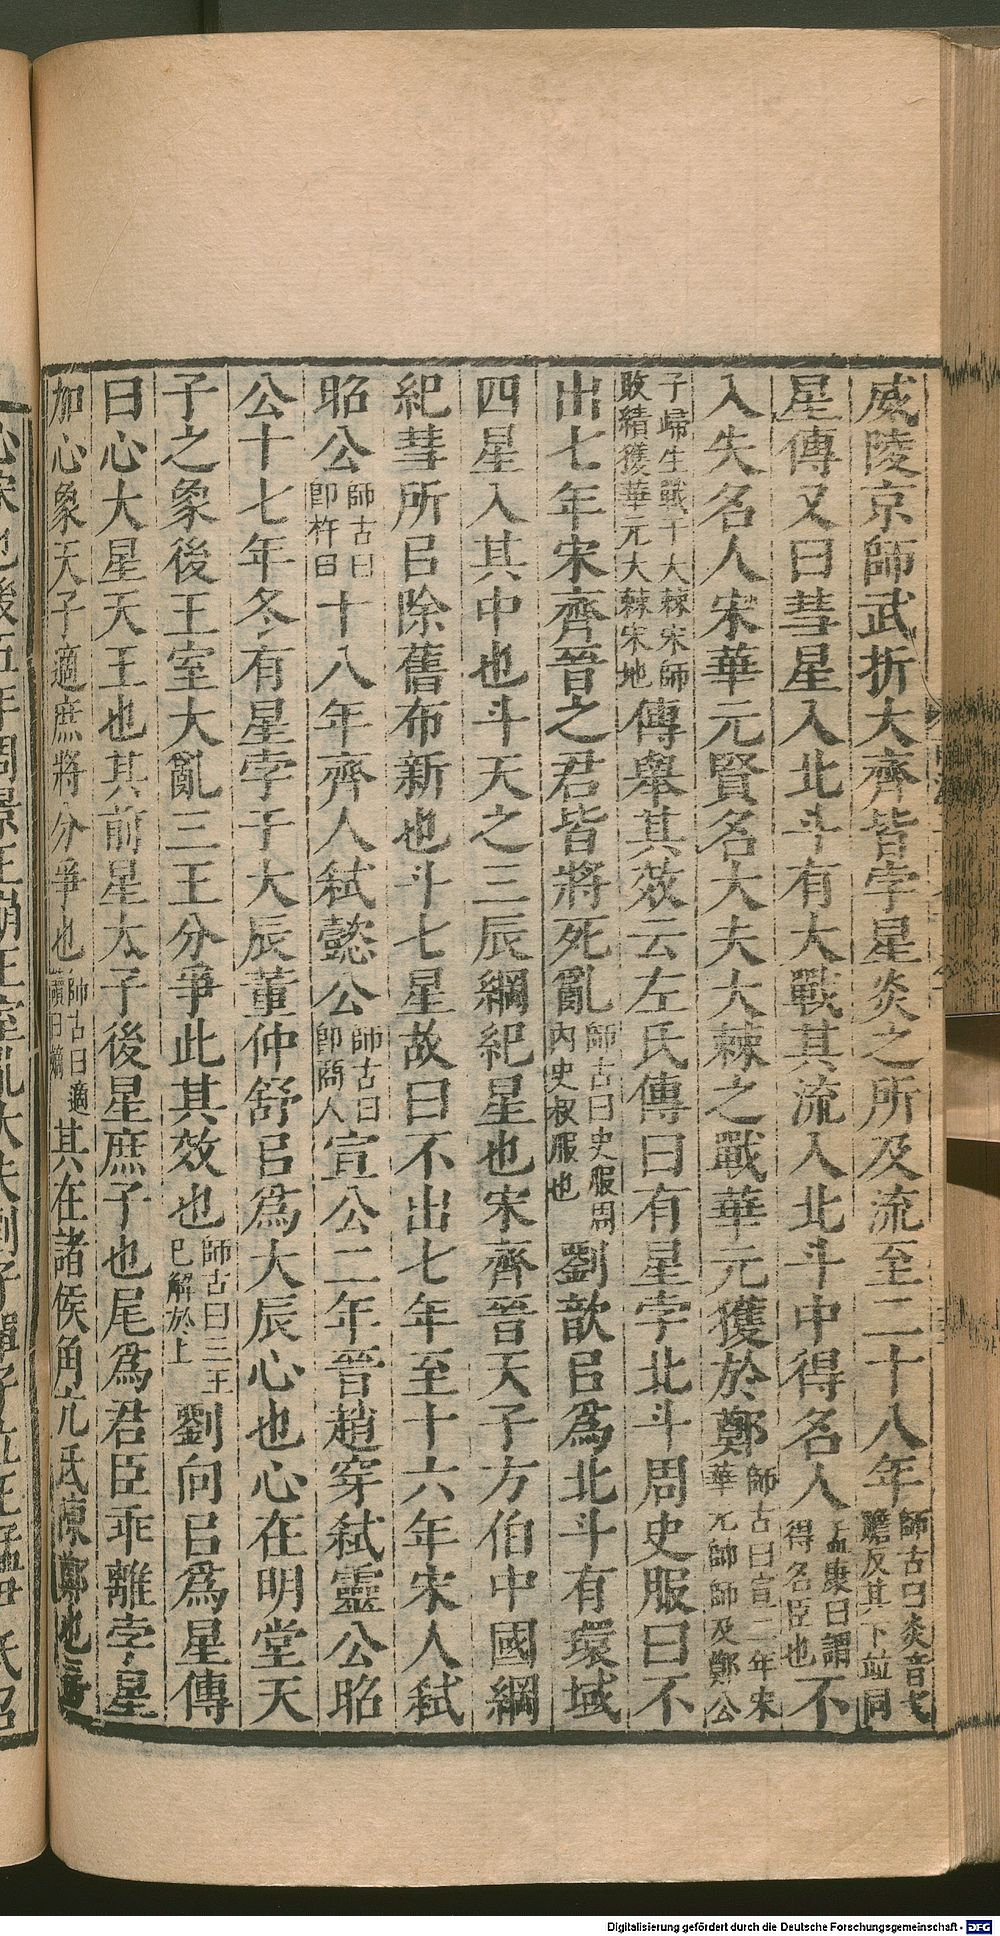 威陵京師武折大齊皆孛星炎之所及流至二十八年師古曰炎音弋贍反其下竝同
星傳又曰彗星入北斗有大戰其流入北斗中得名人孟康曰謂得名臣也不
入失名人宋華元賢名大夫大棘之戰華元獲於鄭師古曰宣二年宋華元帥師及鄭公
子歸生戰于大棘宋師敗績獲華元大棘宋地傳舉其效云左氏傳曰有星孛北斗周史服曰不
出七年宋齊晉之君皆將死亂師古曰史服周內史叔服也劉歆㠯為北斗有環域
四星入其中也斗天之三辰綱紀星也宋齊晉天子方伯中國綱
紀彗所㠯除舊布新也斗七星故曰不出七年至十六年宋人弒
昭公師古曰卽杵臼十八年齊人弒懿公師古曰卽商人宣公二年晉趙穿弒靈公昭
公十七年冬有星孛于大辰董仲舒㠯為大辰心也心在明堂天
子之象後王室大亂三王分爭此其效也師古曰三王已解於上劉向㠯為星傳
曰心大星天王也其前星太子後星庶子也尾為君臣乖離孛星
加心象天子適庶將分爭也師古曰適讀曰嫡其在諸侯角亢氐陳鄭也
Digitalisierung gefördert durch die Deutsche Forschungsgemeinschaft - DFG